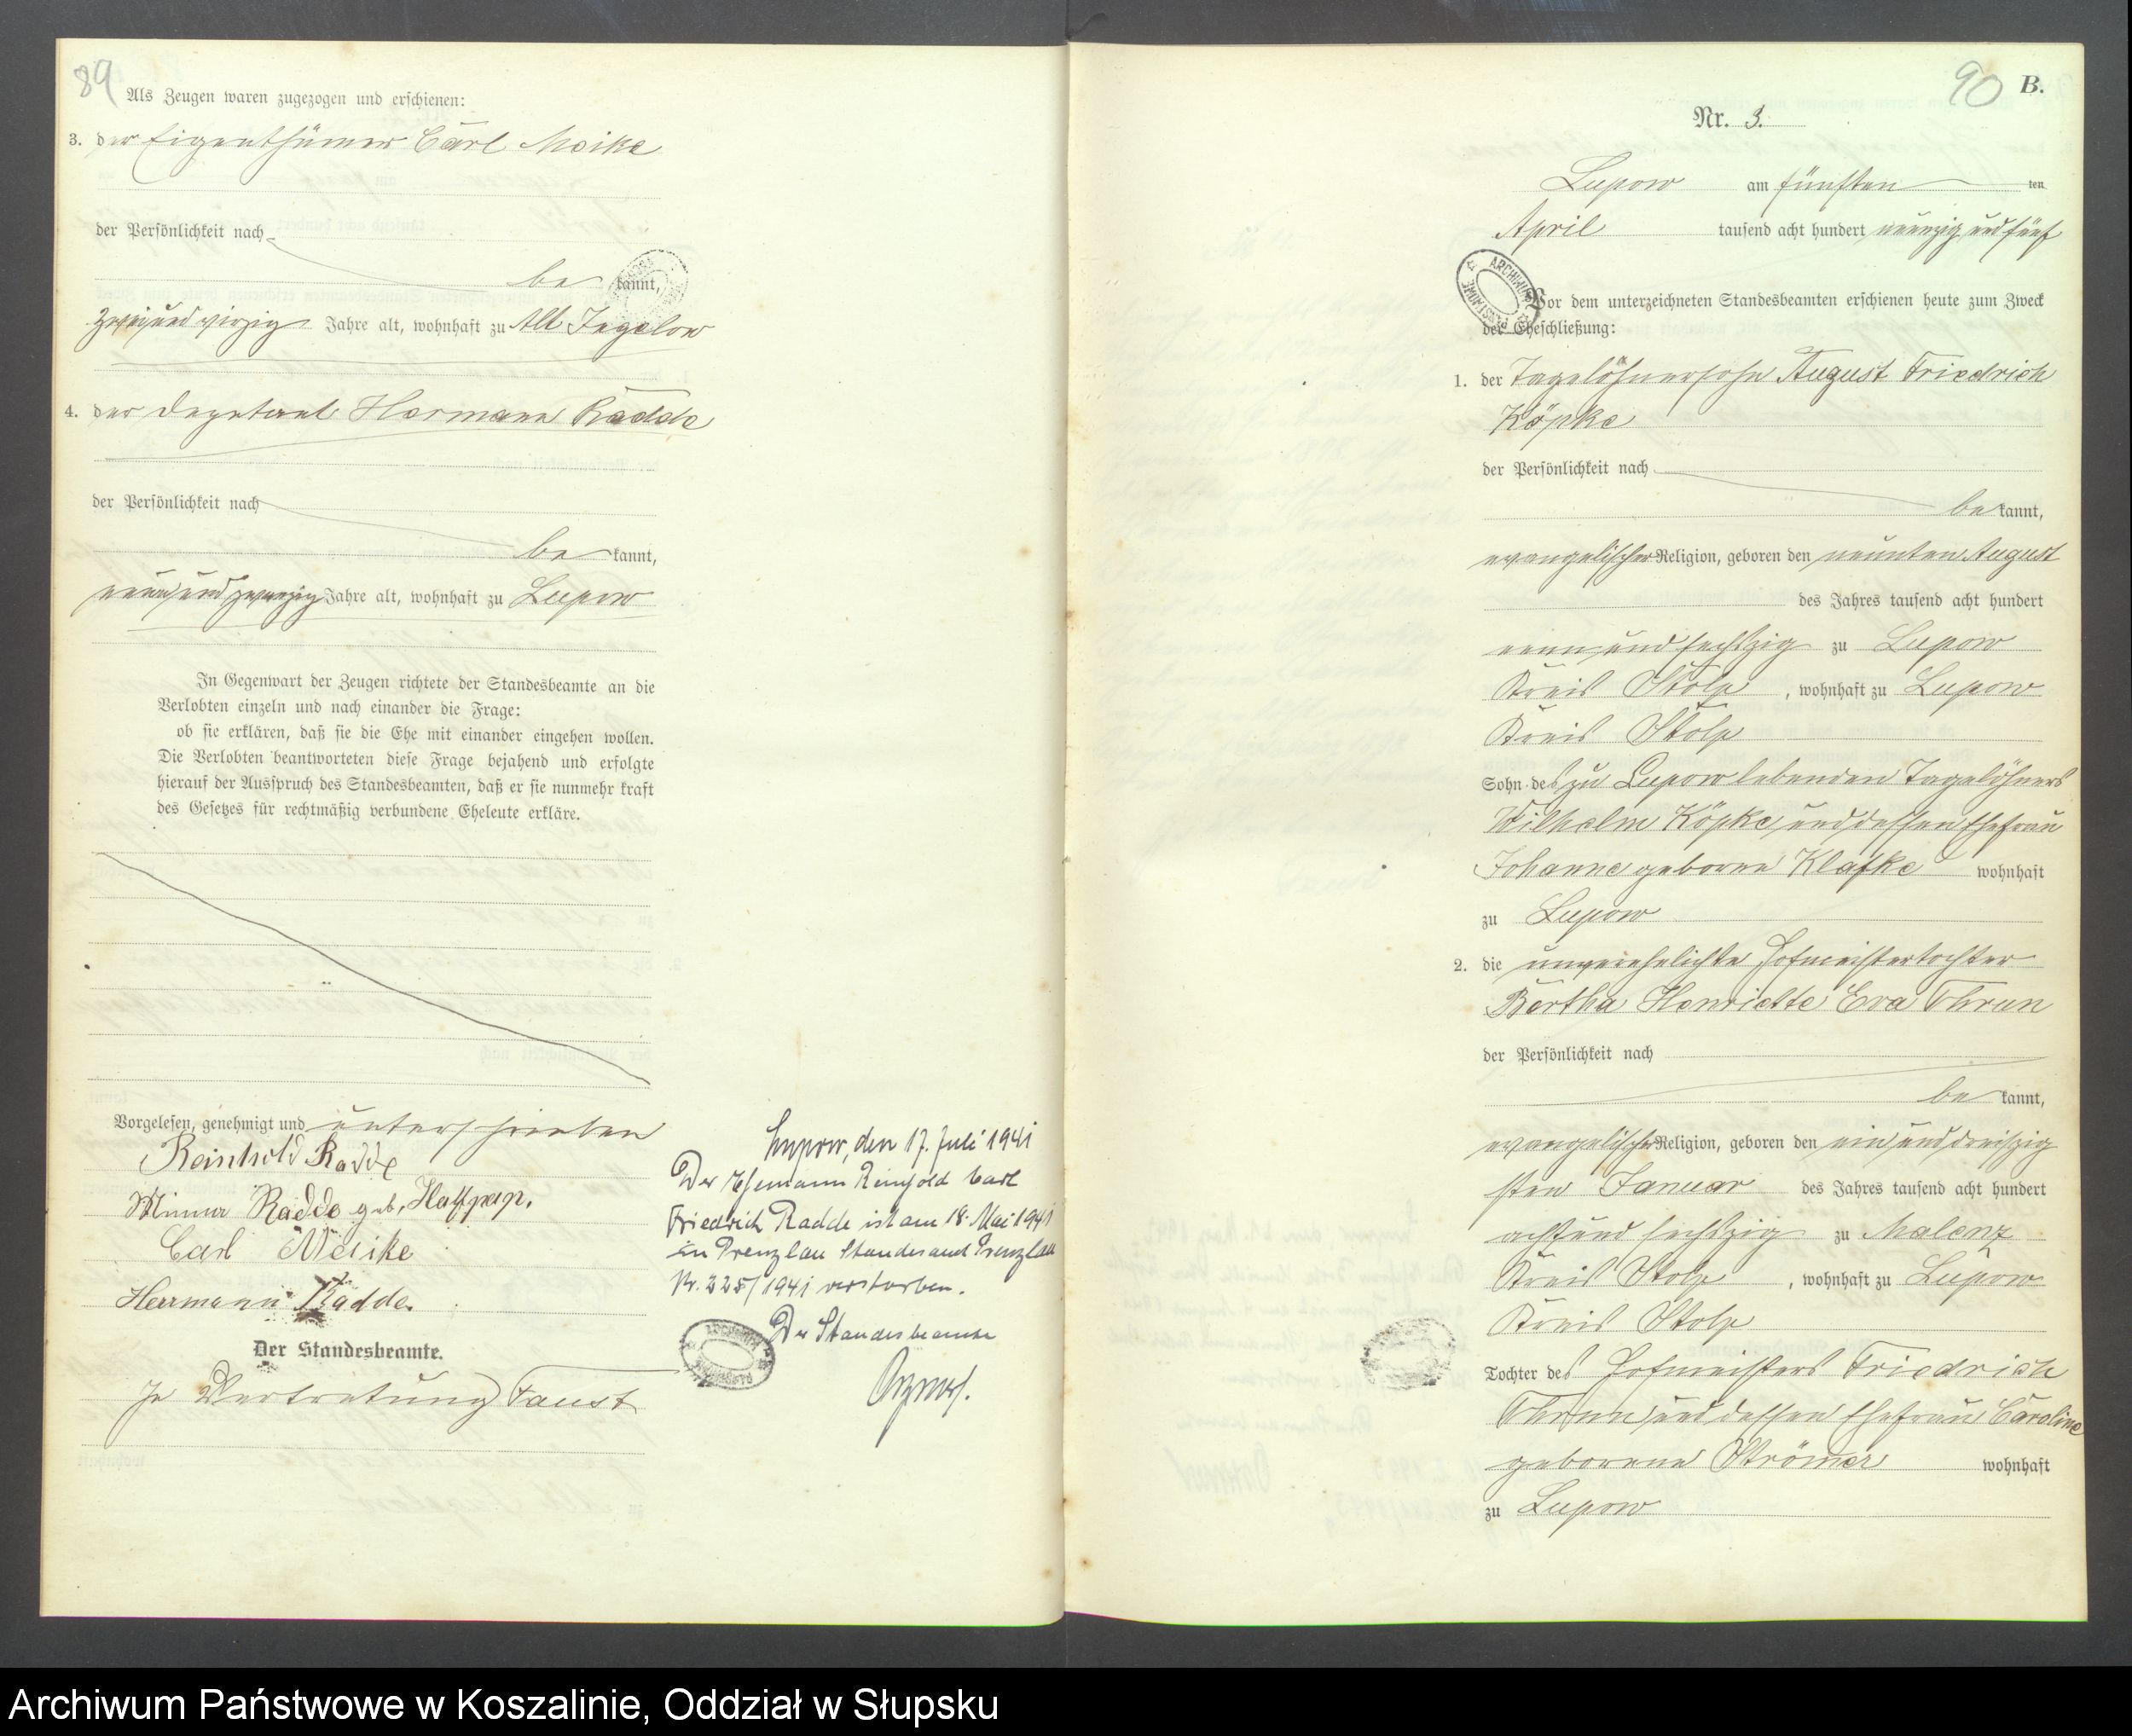 89
Als Zeugen waren zugezogen und erschienen:
3. der Eigenthümer Carl Moike
der Persönlichkeit nach
be kannt,
zwei und vierzig Jahre alt, wohnhaft zu Alt Jugelow
4. der Deputant Hermann Radde
der Persönlichkeit nach
be kannt,
neun und zwanzig Jahre alt, wohnhaft zu Lupow
In Gegenwart der Zeugen richtete der Standesbeamte an die
Verlobten einzeln und nach einander die Frage:
ob sie erklären, daß sie die Ehe mit einander eingehen wollen.
Die Verlobten beantworteten diese Frage bejahend und erfolgte
hierauf der Ausspruch des Standesbeamten, daß er sie nunmehr kraft
des Gesetzes für rechtmäßig verbundene Eheleute erkläre.
Vorgelesen, genehmigt und unterschrieben
Reinhold Radde
Minna Radde geb.
Carl Meike
Herrmann Radde.
Der Standesbeamte.
In Vertretung Faust
Lupow, den 17. Juli 1941
Der Ehemann Reinhold Carl
Friedrich Radde ist am 18. Mai 1941
in Prenzlau Standesamt Prenzlau
Nr. 225/1941 verstorben.
Der Standesbeamte
90 B.
Nr. 3.
Lupow am fünften ten
April tausend acht hundert neunzig und fünf
Vor dem unterzeichneten Standesbeamten erschienen heute zum Zweck
der Eheschließung:
1. der Tagelöhnersohn August Friedrich
Köpke
der Persönlichkeit nach
be kannt,
evangelischer Religion, geboren den neunten August
des Jahres tausend acht hundert
neun und sechszig zu Lupow
Kreis Stolp, wohnhaft zu Lupow
Kreis Stolp
Sohn des zu Lupow lebenden Tagelöhners
Wilhelm Köpke und dessen Ehefrau
Johanne geborne Klafke wohnhaft
zu Lupow
2. die unverehelichte Hofmeistertochter
Bertha Henriette Eva Thrun
der Persönlichkeit nach
be kannt,
evangelischer Religion, geboren den ein und dreißig
sten Januar des Jahres tausend acht hundert
acht und sechszig zu Malenz
Kreis Stolp, wohnhaft zu Lupow
Kreis Stolp
Tochter des Hofmeisters Friedrich
Thrun und dessen Ehefrau Caroline
geborene Strömer wohnhaft
zu Lupow
Archiwum Państwowe w Koszalinie, Oddział w Słupsku